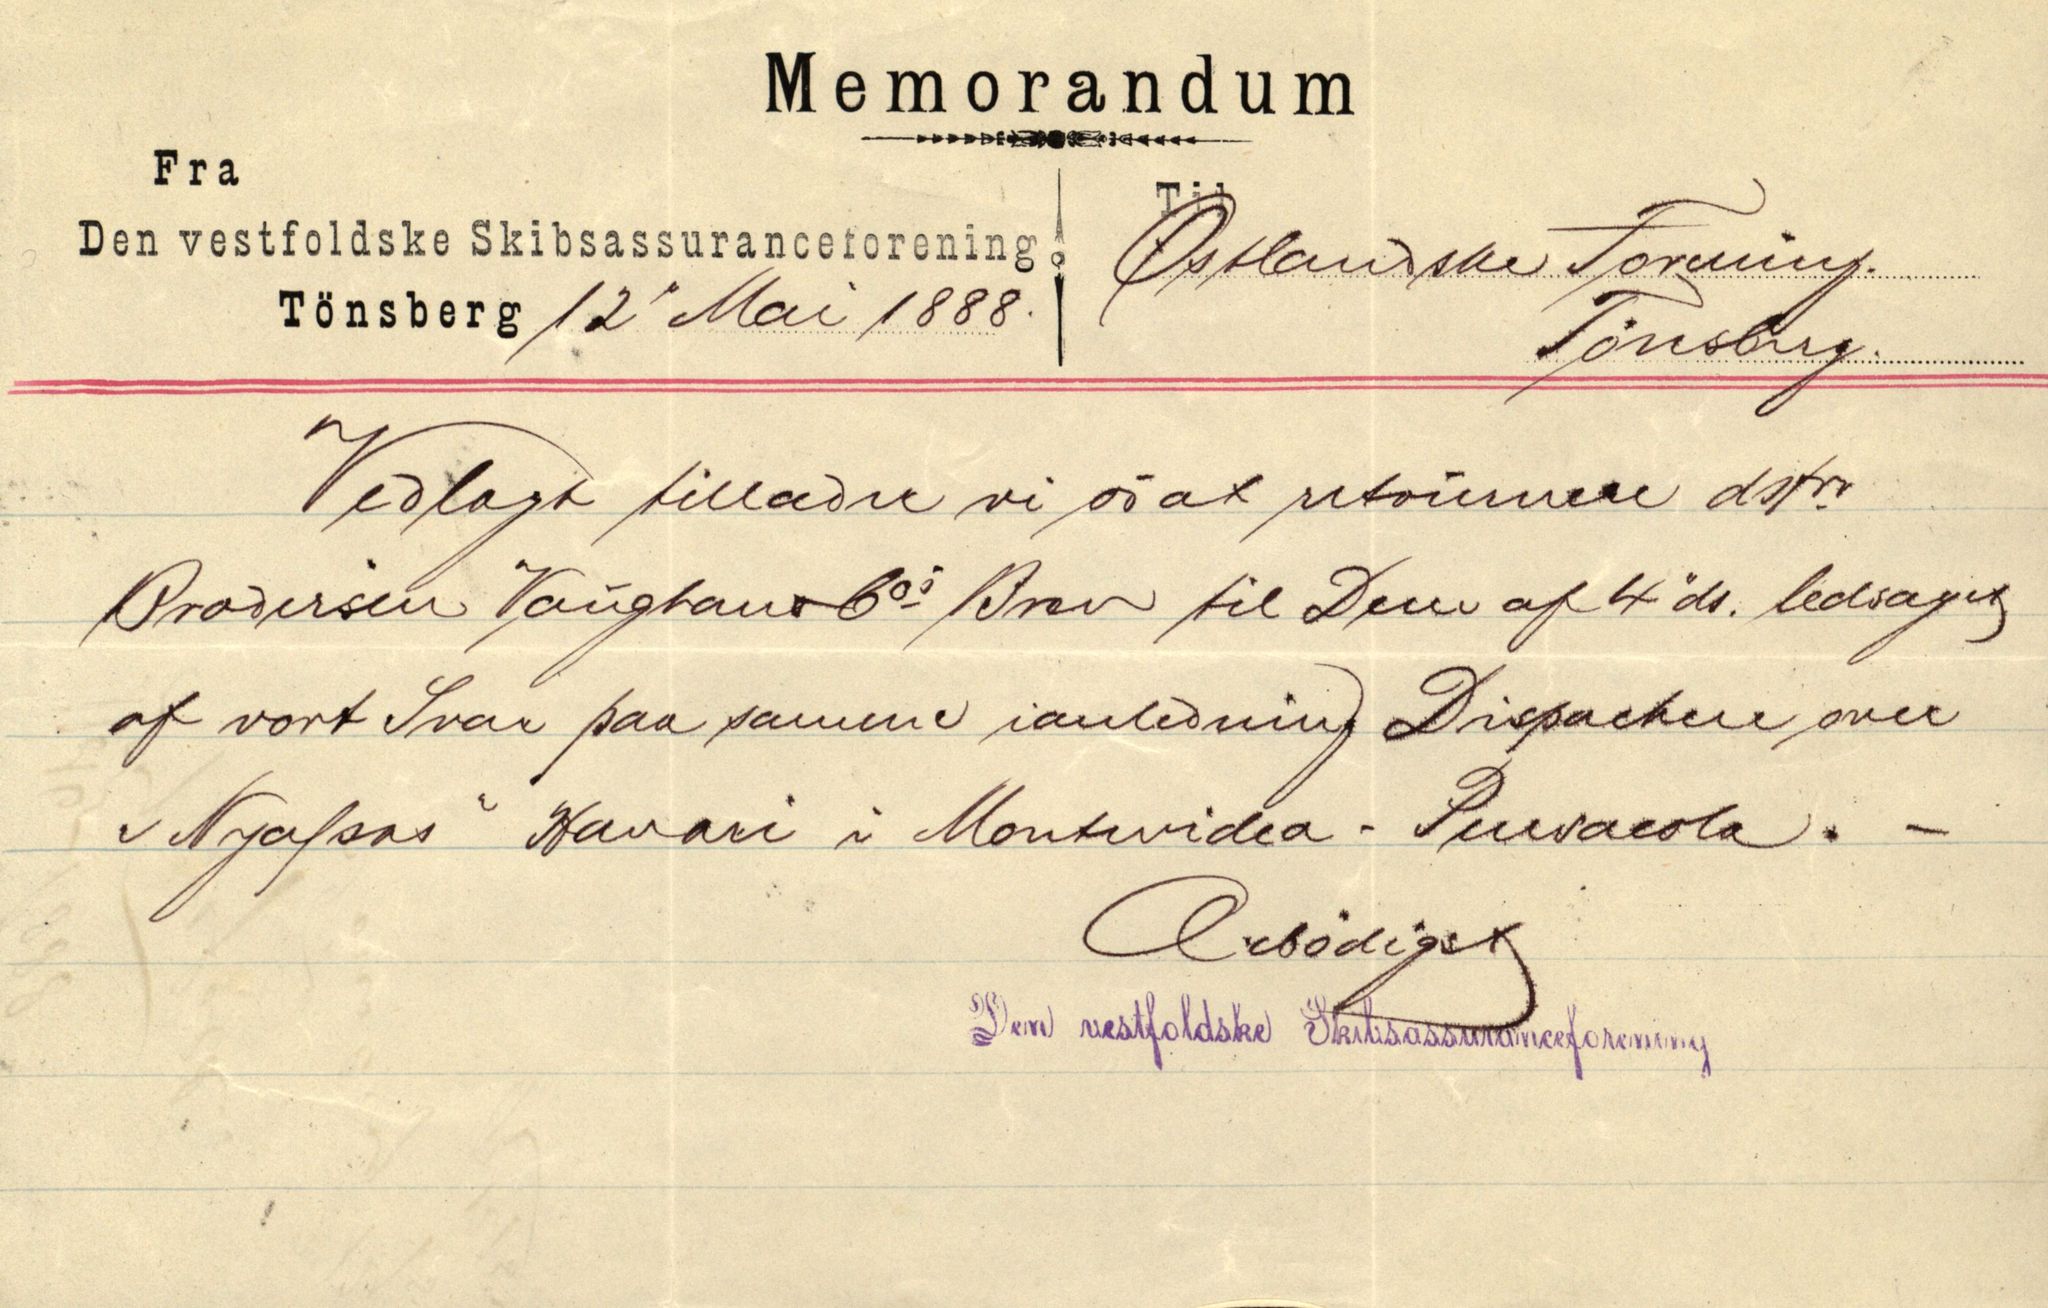 Memorandum
Fra
Den vestfoldske Skibsassuranceforening
Tönsberg 12' Mai 1888.
Til
Østlandske Forening.
Tönsberg.
Vedlagt tillader vi os at retournere
Brodersen Vaughan & Co's Brev til Dem af 4' ds. ledsaget
af vort Svar paa samme ianledning Dispachen over
"Nyassas" Havari i Montevideo - Pensacola. -
Ærbödigst
Den vestfoldske Skibsassuranceforening